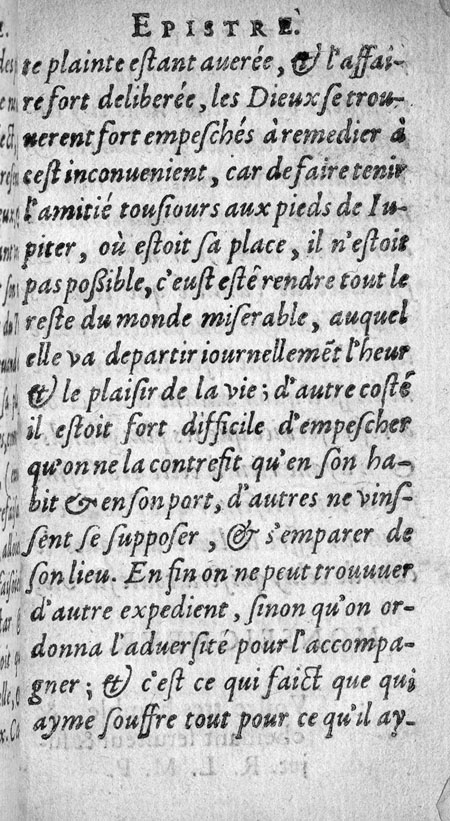 EPISTRE.
te plainte eſtant auerée, & l'affai-
re fort deliberée, les Dieux ſe trou-
uerent fort empeſchés à remedier à
ceſt inconuenient, car de faire tenir
l'amitié touſiours aux pieds de Iu-
piter, où eſtoit ſa place, il n'eſtoit
pas poßible, c'euſt eſté rendre tout le
reſte du monde miſerable, auquel
elle va departir iournellemẽt l'heur
& le plaiſir de la vie; d'autre coſté
il eſtoit fort difficile d'empeſcher
qu'on ne la contrefit qu'en ſon ha-
bit & en ſon port, d'autres ne vinſ-
ſent ſe ſuppoſer, & s'emparer de
ſon lieu. En fin on ne peut trouuuer
d'autre expedient, ſinon qu'on or-
donna l'aduerſité pour l'accompa-
gner; & c'eſt ce qui faict que qui
ayme ſouffre tout pour ce qu'il ay-